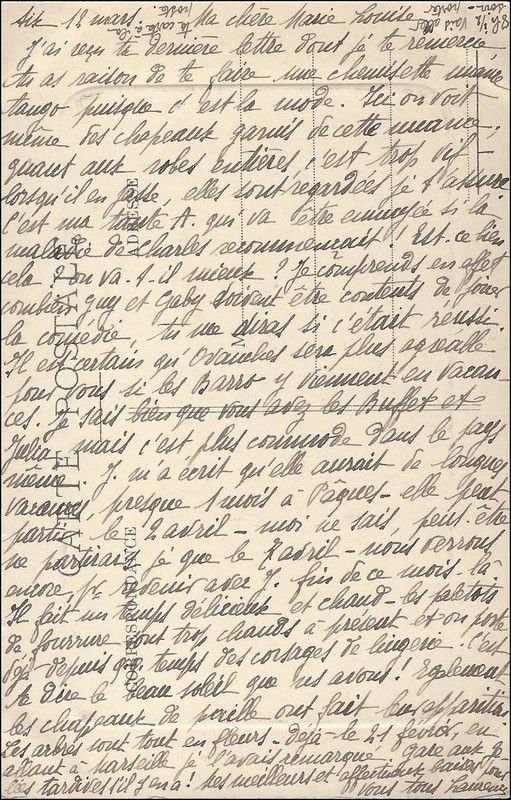 Aix 12 mars. Ma chère Marie Louise
J'ai reçu ta dernière lettre dont je te remercie
tu as raison de te faire une chemisette
tango puisque c'est la mode. Ici on voit
même des chapeaux garnis de cette nuance,
quant aux robes entières c'est trop vif -
lorsqu'il en passe, elles sont regardées je t'assure
C'est ma tante A. qui va être ennuyée si la
maladie de Charles recommençait ! Est-ce bien
cela ? on va-t-il mieux ? Je comprends en effet
combien Guy et Gaby doivent être contents de jouer
la comédie, tu me diras si c'était réussi.
Il est certain qu'Avanches sera plus agréable
pour vous si les Barro y viennent en vacan-
ces. Je sais bien que vous avez les Buffet et
Julia, mais c'est plus commode dans le pays
même. J. m'a écrit qu'elle aurait de longues
vacances, presque 1 mois à Pâques - elle peut
partir le 2 avril - moi ne sais, peut-être
ne partirai je que le 7 avril - nous verrons
encore, pr. revenir avec J. fin de ce mois là
Il fait un temps délicieux et chaud - les paletots
de fourrure sont trop chauds à présent et on porte
déjà depuis qq. temps des corsages de lingerie. C'est
te dire le beau soleil que ns avons ! Egalement
les chapeaux de paille ont fait leur apparition
Les arbres sont tout en fleurs - déjà le 21 février, en
allant à Marseille je l'avais remarqué. Gare aux ge-
lées tardives s'il y en a ! Des meilleurs et affectueux baisers pour
vous tous
CARTE POSTALE
CORRESPONDANCE
ADRESSE